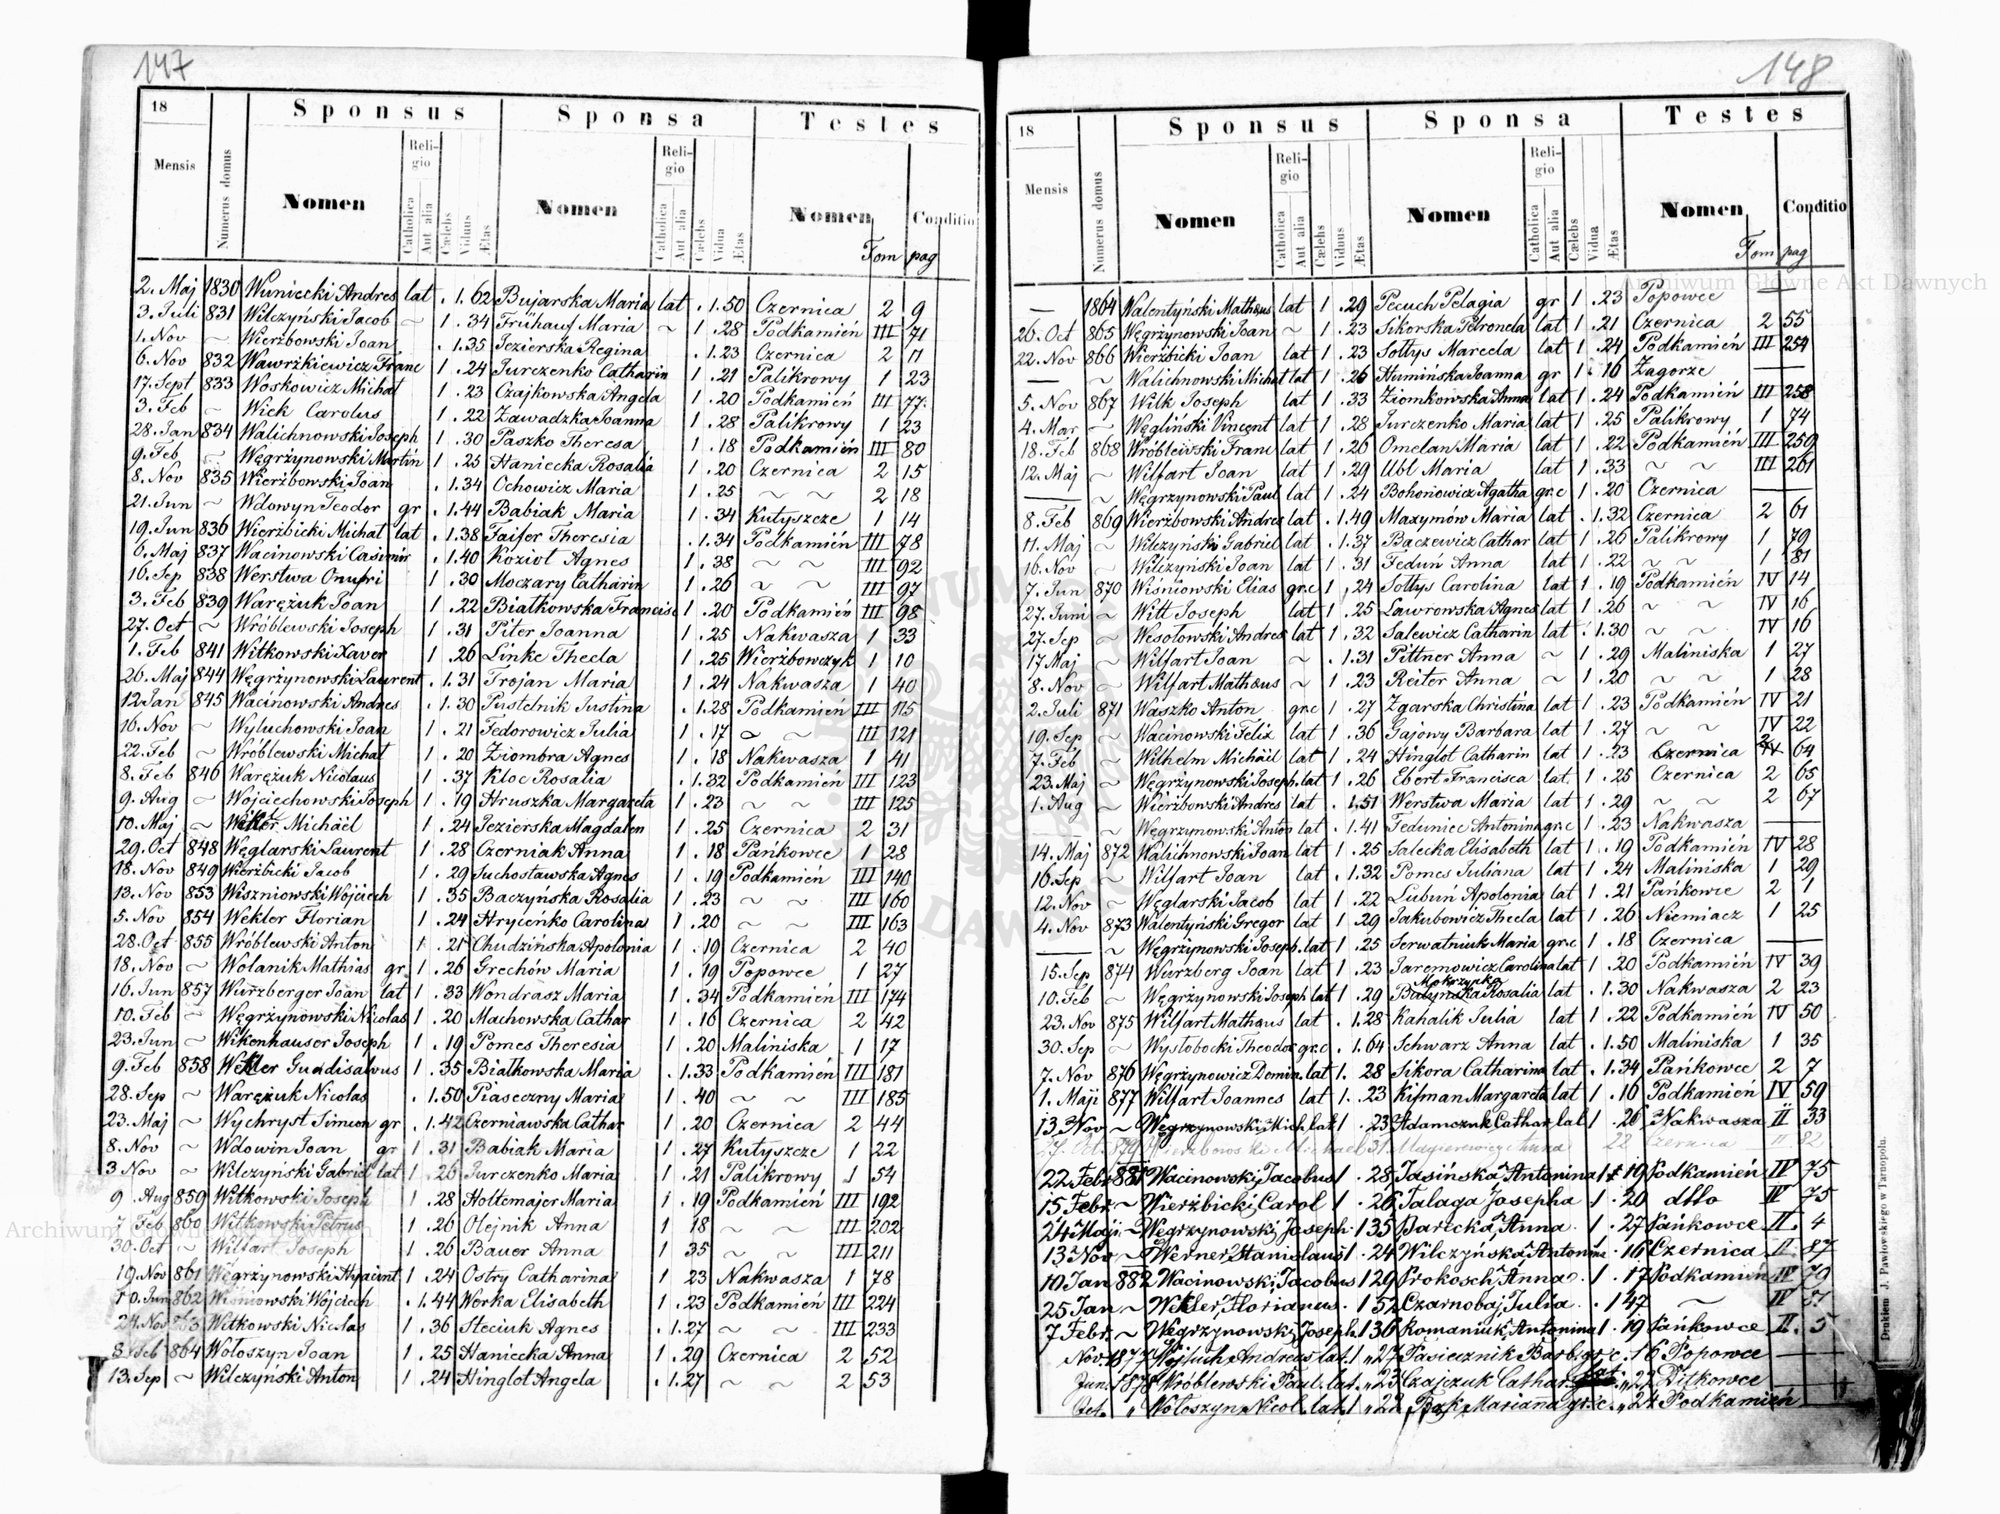 147
18 Sponsus Sponsa Testes
Mensis Numerus domus Nomen Religio Catholica Aut alia Cælebs Viduus Ætas Nomen Religio Catholica Aut alia Cælebs Vidua Ætas Nomen Conditio
Tom pag
2. Maj 1830 Wuniecki Andres lat . 1. 62 Bujarska Maria lat . 1. 50 Czernica 2 9
3. Juli 831 Wilczyński Jacob ~ 1 . 34 Frühauf Maria ~ 1 . 28 Podkamień III 71
1. Nov ~ Wierzbowski Joan . 1. 35 Jezierska Regina . 1. 23 Czernica 2 11
6. Nov 832 Wawrzkiewicz Franc 1 . 24 Jurczenko Catharin 1 . 21 Palikrowy 1 23
17. Sept 833 Woskowicz Michał 1 . 23 Czajkowska Angela 1 . 20 Podkamień III 77
3. Feb ~ Wiek Carolus 1 . 22 Zawadzka Joanna 1 . 28 Palikrowy 1 23
28. Jan 834 Walichnowski Joseph 1 . 30 Paszko Theresa 1 . 18 Podkamień III 80
9. Feb ~ Węgrzynowski Martin 1 . 25 Haniecka Rosalia 1 . 20 Czernica 2 15
8. Nov 835 Wierzbowski Joan . 1. 34 Ochowicz Maria 1 . 25 ~ ~ 2 18
21. Jun ~ Wdowyn Teodor gr . 1. 44 Babiak Maria 1 . 34 Kutyszcze 1 14
19. Jun 836 Wierzbicki Michał lat . 1. 38 Faifer Theresia . 1. 34 Podkamień III 78
6. Maj 837 Wacinowski Casimir . 1. 40 Kozioł Agnes 1 . 38 ~ ~ III 92
16. Sep 838 Werstwa Onufri 1 . 30 Moczary Catharin 1 . 26 ~ ~ III 97
3. Feb 839 Warężuk Joan 1 . 22 Białkowska Francisc 1 . 20 Podkamień III 98
27. Oct ~ Wróblewski Joseph 1 . 31 Piter Joanna 1 . 25 Nakwasza 1 33
1. Feb 841 Witkowski Xaver 1 . 26 Linke Thecla 1 . 25 Wierzbowczyk 1 10
26. Maj 844 Węgrzynowski Laurent . 1. 31 Trojan Maria 1 . 24 Nakwasza 1 40
12 Jan 845 Wacinowski Andres . 1. 30 Pustelnik Justina . 1. 28 Podkamień III 115
16. Nov ~ Wyluchowski Joan 1 . 21 Fedorowicz Julia 1 . 17 ~ ~ III 121
22. Feb ~ Wróblewski Michał 1 . 20 Ziombra Agnes 1 . 18 Nakwasza 1 41
8. Feb 846 Warężuk Nicolaus 1 . 37 Kloc Rosalia . 1. 32 Podkamień III 123
9. Aug ~ Wojciechowski Joseph 1 . 19 Hruszka Margareta 1 . 23 ~ ~ III 125
10. Maj ~ Michäel 1 . 24 Jezierska Magdalen 1 . 25 Czernica 2 31
29. Oct 848 Węglarski Laurent 1 . 28 Czerniak Anna 1 . 18 Pańkowce 1 28
18. Nov 849 Wierzbicki Jacob 1 . 29 Suchosławska Agnes 1 . 19 Podkamień III 140
13. Nov 853 Wiszniowski Wojciech 1 . 35 Baczyńska Rosalia 1 . 23 ~ ~ III 160
5. Nov 854 Wekler Florian 1 . 24 Hryceńko Carolina 1 . 20 ~ ~ III 163
28. Oct 855 Wróblewski Anton 1 . 21 Chudzińska Apolonia 1 . 19 Czernica 2 40
18. Nov ~ Wolanik Mathias gr. 1 . 26 Grechów Maria 1 . 19 Popowce 1 27
16. Jun 857 Wurzberger Joan lat 1 . 33 Wondrasz Maria 1 . 34 Podkamień III 174
10. Feb ~ Węgrzynowski Nicolas 1 . 20 Machowska Cathar 1 . 16 Czernica 2 42
23. Jun ~ Wikenhauser Joseph 1 . 19 Pomes Theresia 1 . 20 Maliniska 1 17
9. Feb 858 Wekler Gundisalvus 1 . 35 Białkowska Maria . 1. 33 Podkamień III 181
28. Sep ~ Warężuk Nicolas . 1. 50 Piaseczny Maria 1 . 40 ~ ~ III 185
23. Maj ~ Wychryst Simeon gr . 1. 42 Czerniawska Cathar 1 . 20 Czernica 2 44
8. Nov ~ Wdowin Joan gr 1 . 31 Babiak Maria 1 . 27 Kutyszcze 1 22
3 Nov ~ Wilczyński Gabriel lat 1 . 26 Jurczenko Maria 1 . 21 Palikrowy 1 54
9 Aug 859 Witkowski Joseph 1 . 28 Holtemajer Maria 1 . 19 Podkamień III 192
7 Feb 860 Witkowski Petrus 1 . 26 Olejnik Anna 1 18 ~ ~ III 202
30. Oct ~ Wilfart Joseph 1 . 26 Bauer Anna 1 35 ~ ~ III 211
19. Nov 861 Węgrzynowski Hyacint 1 . 24 Ostry Catharina 1 23 Nakwasza 1 78
10. Jun 862 Wiśniowski Wojciech . 1. 44 Werka Elisabeth 1 . 23 Podkamień III 224
24. Nov 863 Witkowski Nicolas 1 . 36 Steciuk Agnes . 1. 27 ~ ~ III 233
8. Feb 864 Wołoszyn Joan 1 . 25 Haniecka Anna 1 . 29 Czernica 2 52
13. Sep ~ Wilczyński Anton 1 . 24 Hinglot Angela . 1. 27 ~ ~ 2 53
148
18 Sponsus Sponsa Testes
Mensis Numerus domus Nomen Religio Catholica Aut alia Cælebs Viduus Ætas Nomen Religio Catholica Aut alia Cælebs Vidua Ætas Nomen Conditio
Tom pag
— 1864 Walentyński Mathæus lat 1 . 29 Pecuch Pelagia gr 1 . 23 Popowce —
26. Oct 865 Węgrzynowski Joan ~ 1 . 23 Sikorska Petronela lat 1 . 21 Czernica 2 55
22. Nov 866 Wierzbicki Joan lat 1 . 23 Sołtys Marcela lat 1 . 24 Podkamień III 254
— ~ Walichnowski Michał lat 1 . 26 Humińska Joanna gr 1 . 16 Zagorze —
5. Nov 867 Wilk Joseph lat 1 . 33 Ziomkowska Anna lat 1 . 24 Podkamień III 258
4. Mar ~ Węgliński Vincent lat 1 . 28 Jurczenko Maria lat 1 . 25 Palikrowy 1 74
18. Feb 868 Wróblewski Franc lat 1 . 26 Omelan Maria lat 1 . 22 Podkamień III 259
12. Maj ~ Wilfart Joan lat 1 . 29 Ubl Maria lat 1 . 33 ~ ~ III 261
— ~ Węgrzynowski Paul lat 1 . 24 Bohonowicz Agatha gr.c 1 . 20 Czernica —
8. Feb 869 Wierzbowski Andres lat . 1. 49 Maxymów Maria lat . 1. 32 Czernica 2 61
11. Maj ~ Wilczyński Gabriel lat . 1. 37 Baczewicz Cathar lat 1 . 26 Palikrowy 1 79
16. Nov ~ Wilczyński Joan lat 1 . 31 Feduń Anna lat 1 . 22 ~ ~ 1 81
7. Jun 870 Wiśniowski Elias gr.c 1 . 24 Sołtys Carolina lat 1 . 19 Podkamień IV 14
27. Juni ~ Witt Joseph lat 1 . 25 Ławrowska Agnes lat 1 . 26 ~ ~ IV 16
27. Sep ~ Wesołowski Andres lat 1 . 32 Salewicz Catharin lat . 1. 30 ~ ~ IV 16
17 Maj ~ Wilfart Joan ~ . 1. 31 Pittner Anna ~ 1 . 29 Maliniska 1 27
8. Nov ~ Wilfart Mathæus ~ 1 . 23 Reiter Anna ~ 1 . 20 ~ ~ 1 28
2. Juli 871 Waszko Anton gr.c 1 . 27 Zgarska Christina lat 1 . 23 Podkamień IV 21
19. Sep ~ Wacinowski Felix lat 1 . 36 Gajowy Barbara lat 1 . 27 ~ ~ IV 22
7. Feb ~ Wilhelm Michäil lat 1 . 24 Hinglot Catharin lat 1 . 23 Czernica 2 64
23. Maj ~ Węgrzynowski Joseph. lat 1 . 26 Ebert Francisca lat 1 . 25 Czernica 2 65
1. Aug ~ Wierzbowski Andres lat . 1. 51 Werstwa Maria lat 1 . 29 ~ ~ 2 67
— ~ Węgrzynowski Anton lat . 1. 41 Feduniec Antonina gr.c 1 . 23 Nakwasza —
14. Maj 872 Walichnowski Joan lat 1 . 25 Salecka Elisabeth lat 1 . 19 Podkamień IV 28
16. Sep ~ Wilfart Joan lat . 1. 32 Pomes Juliana lat 1 . 24 Maliniska 1 29
12. Nov ~ Węglarski Jacob lat 1 . 22 Łubuń Apolonia lat 1 . 21 Pańkowce 2 1
4. Nov 873 Walentyński Gregor lat 1 . 29 Jakubowicz Thecla lat 1 . 26 Niemiacz 1 25
— ~ Węgrzynowski Joseph. lat 1 . 25 Serwatniuk Maria gr.c 1 . 18 Czernica —
15. Sep 874 Wurzberg Joan lat 1 . 23 Jaremowicz Carolina lat 1 . 20 Podkamień IV 39
10. Feb ~ Węgrzynowski Joseph lat 1 . 29 Rosalia lat . 1. 30 Nakwasza 2 23
23. Nov 875 Wilfart Mathæus lat . 1. 28 Kahalik Julia lat 1 . 22 Podkamień IV 50
30. Sep ~ Wysłobocki Theodor gr.c . 1. 64 Schwarz Anna lat . 1. 50 Maliniska 1 35
7. Nov 876 Węgrzynowicz Domin. lat 1. 28 Sikora Catharina lat . 1. 34 Pańkowce 2 7
1. Maji 877 Wilfart Joannes lat 1. . 23 Kifman Margareta lat 1 . 16 Podkamień IV 59
13. Nov ~ Węgrzynowski Mich. lat 1 . 23 Adamczuk Cathar. lat 1 . 26 Nakwasza II 33
27. Oct. 879 Wierzbowski Michael 31 Anna 22 Czernica II 82
22 Febr 881 Wacinowski Jacobus 1 . 28 Jasińska Antonina 1 . 19 Podkamień IV 75
15 Febr. ~ Wierzbicki Carol 1 . 26 Talaga Josepha 1 . 20 dtto IV 75
24 Maji ~ Węgrzynowski Joseph 1 35 Parecka Anna . 1 . 27 Pańkowce II. 4
13 Nov. ~ Werner Stanislaus 1 . 24 Wilczyńska Antonina . 16 Czernica II. 87
10 Jan 882 Wacinowski Jacobus 1 29 Prokosch Anna . 1 . 17 Podkamień IV 79
25 Jan ~ Wekler Florianus . 1 52 Czarnobaj Julia . 1 47 ~ IV
7 Febr. ~ Węgrzynowski Joseph 1 36 Romaniuk Antonina 1 . 19 Pańkowce II. 5
Nov. 1877 Wojtuch Andreas lat. 1 " 27 Pasiecznik Barb. gr.c. . 16 Popowce —
Jun. 1878 Wróblewski Paul. lat. " 23 Czajczuk Cathar. " 22 Ditkowce —
Oct. " Wołoszyn Nicol. lat. 1 " 22 Mariana gr.c. " 24 Podkamień
Drukiem J. Pawłowskiego w Tarnopolu.
Archiwum Główne Akt Dawnych